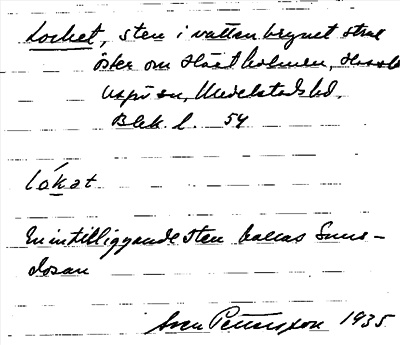 Locket, sten i vattenbrynet strax
öster om Hästholmen, Hasslö
Uspö sn, Medelstads hd.
Blek. l. 54
lókat
En intilliggande sten kallas Snus-
dosan
Sven Pettersson 1935